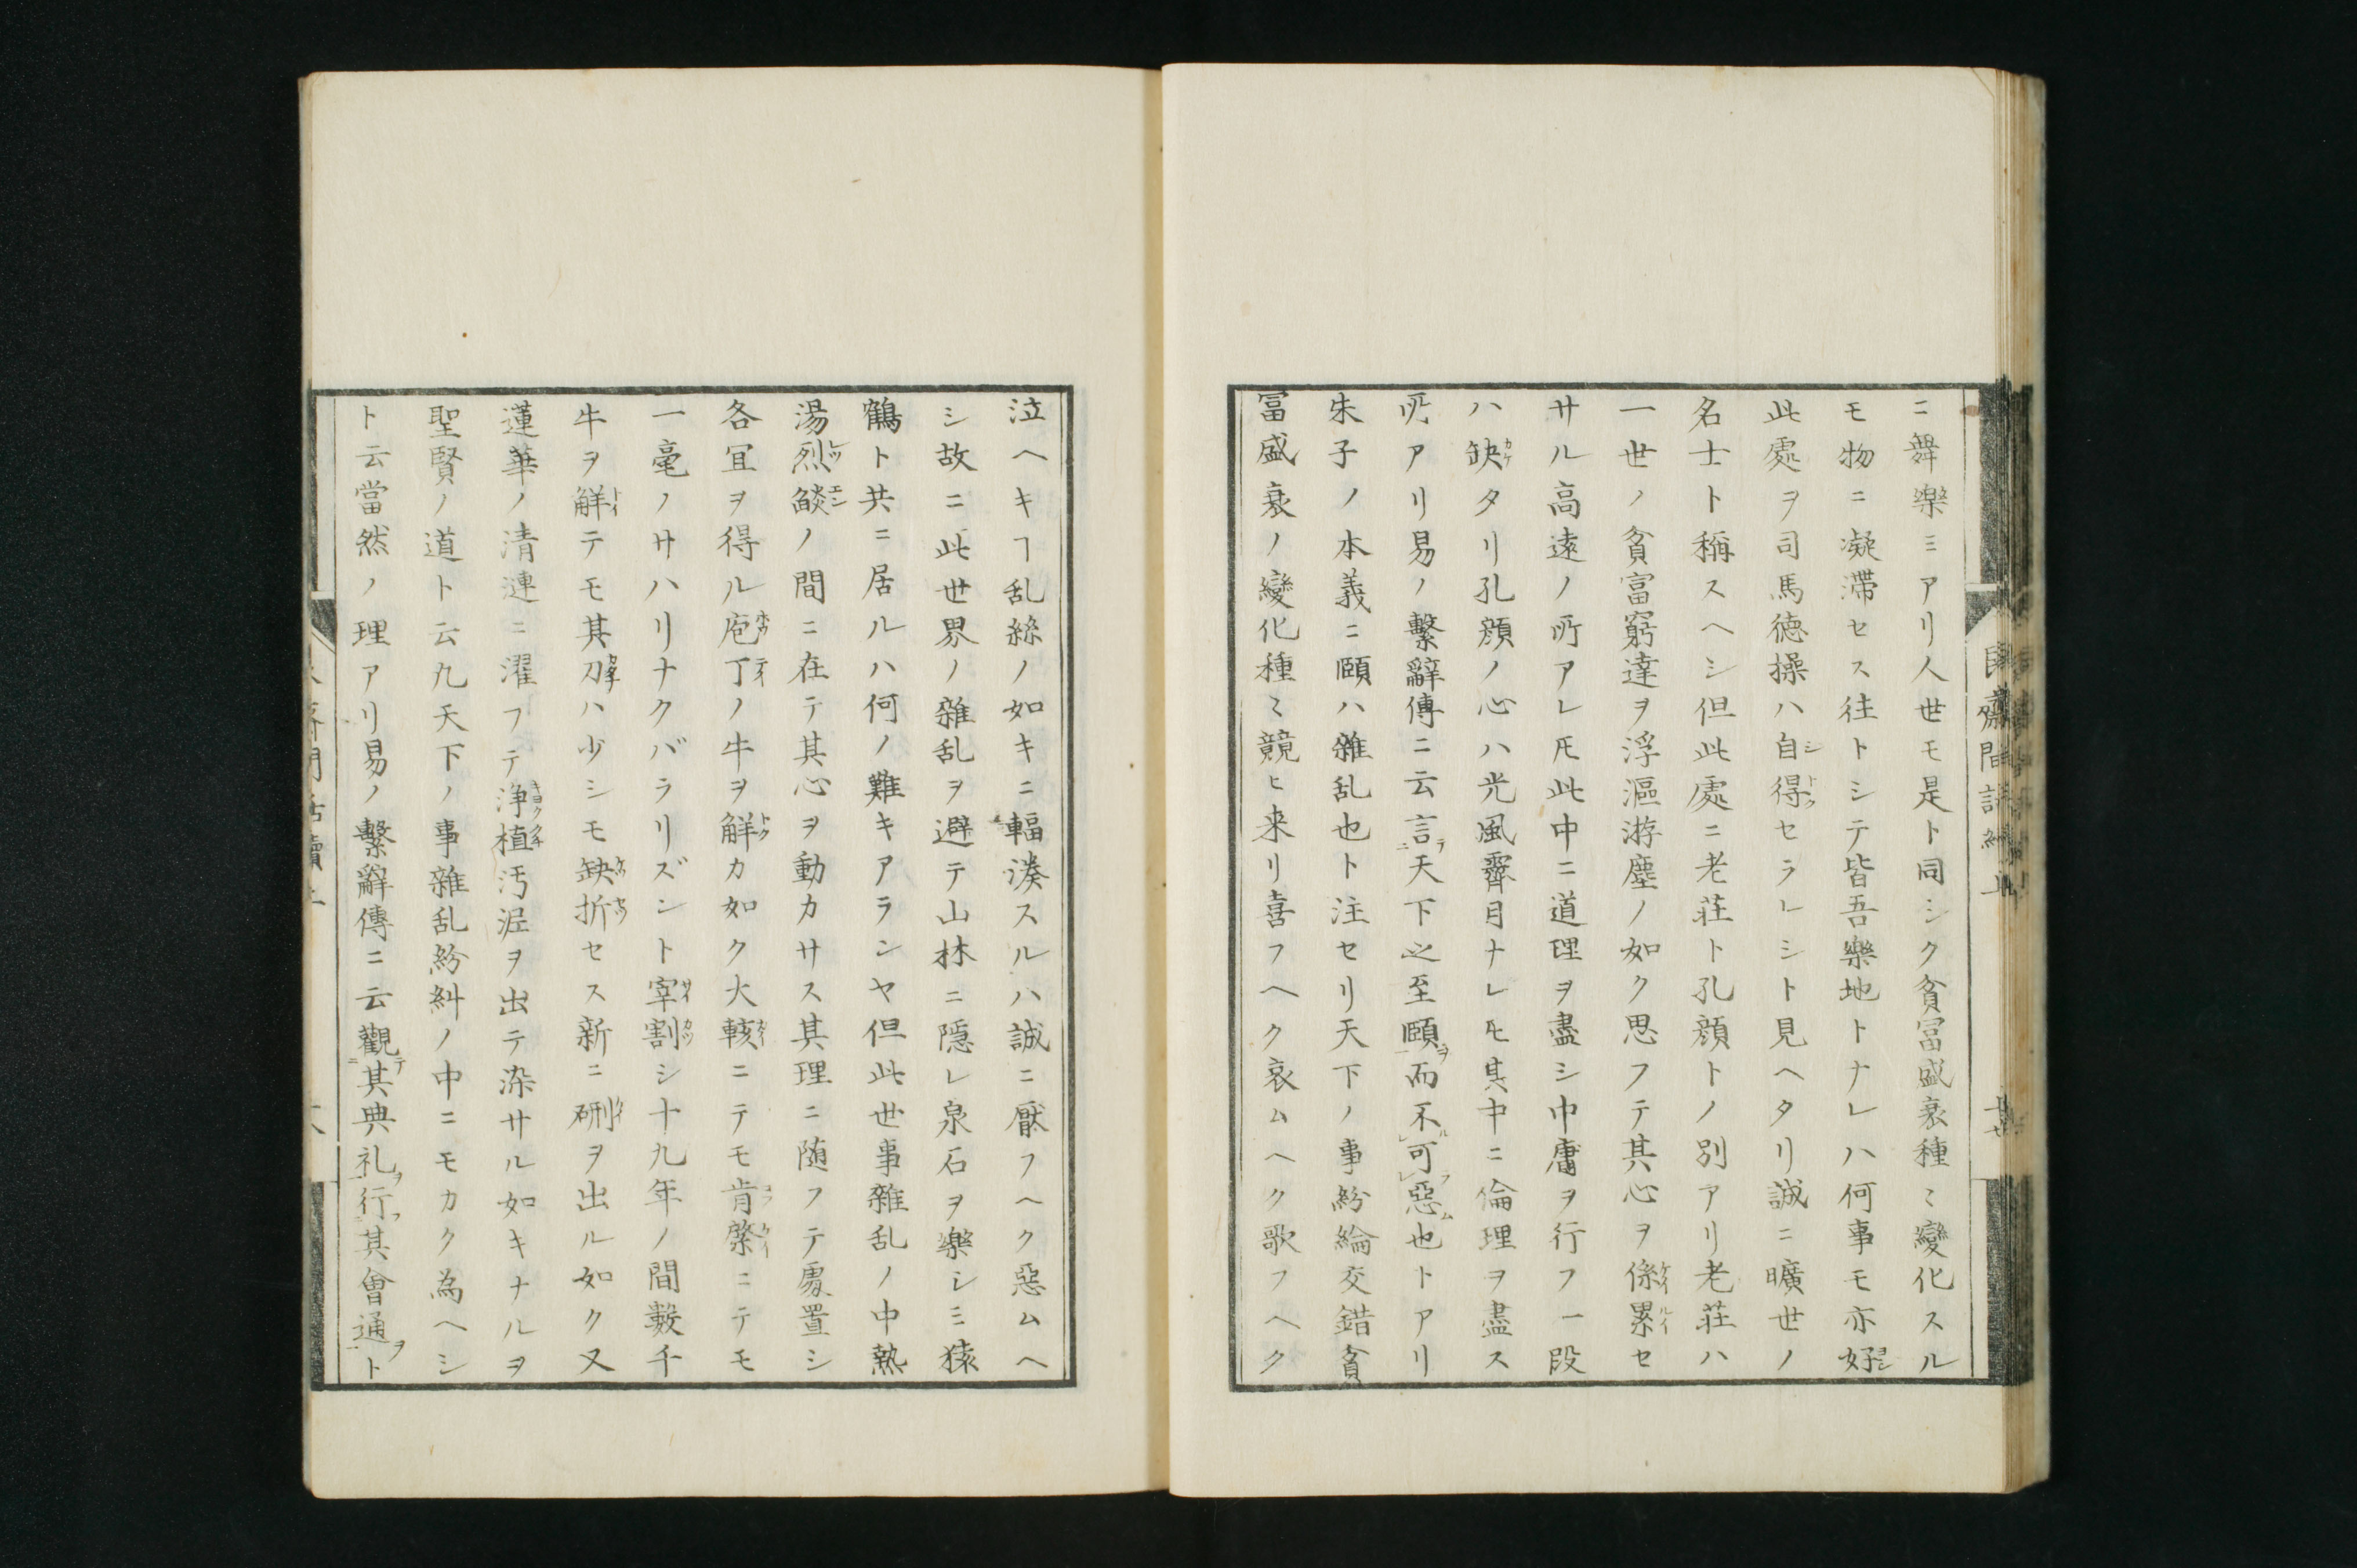 ニ舞楽ミアリ人世モ是ト同シク貧冨盛衰種〻變化スル
モ物ニ凝滞セス往トシテ皆吾樂地トナレハ何事モ亦好
此處ヲ司馬徳操ハ自得セラレシト見ヘタリ誠ニ曠世ノ
名士ト稱スヘシ但此處ニ老荘ト孔顔トノ別アリ老荘ハ
一世ノ貧富窮達ヲ浮漚游塵ノ如ク思フテ其心ヲ係累セ
サル高遠ノ所アレ𪜈此中ニ道理ヲ盡シ中庸ヲ行フ一段
ハ缺タリ孔顔ノ心ハ光風霽月ナレ𪜈其中ニ倫理ヲ盡ス
所アリ易ノ繫辭傳ニ云言天下之至賾而不可惡也トアリ
朱子ノ本義ニ賾ハ雜乱也ト注セリ天下ノ事紛綸交錯貧
冨盛衰ノ變化種〻競ヒ来リ喜フヘク哀ムヘク歌フヘク
泣ヘキヿ乱絲ノ如キニ輻湊スルハ誠ニ厭フヘク惡ムヘ
シ故ニ此世界ノ雜乱ヲ避テ山林ニ隠レ泉石ヲ樂シミ猿
鶴ト共ニ居ルハ何ノ難キアランヤ但此世事雜乱ノ中熱
湯烈燄ノ間ニ在テ其心ヲ動カサス其理ニ随フテ處置シ
各冝ヲ得ル庖丁ノ牛ヲ解カ如ク大軱ニテモ肯綮ニテモ
一毫ノサハリナクバラリズント宰割シ十九年ノ間數千
牛ヲ解テモ其刀ハ少シモ缺折セス新ニ硎ヲ出ル如ク又
蓮華ノ清漣ニ濯フテ浄植汚泥ヲ出テ染サル如キナルヲ
聖賢ノ道ト云凡天下ノ事雜乱紛糾ノ中ニモカク為ヘシ
ト云當然ノ理アリ易ノ繫辭傳ニ云觀其典礼行其會通ト